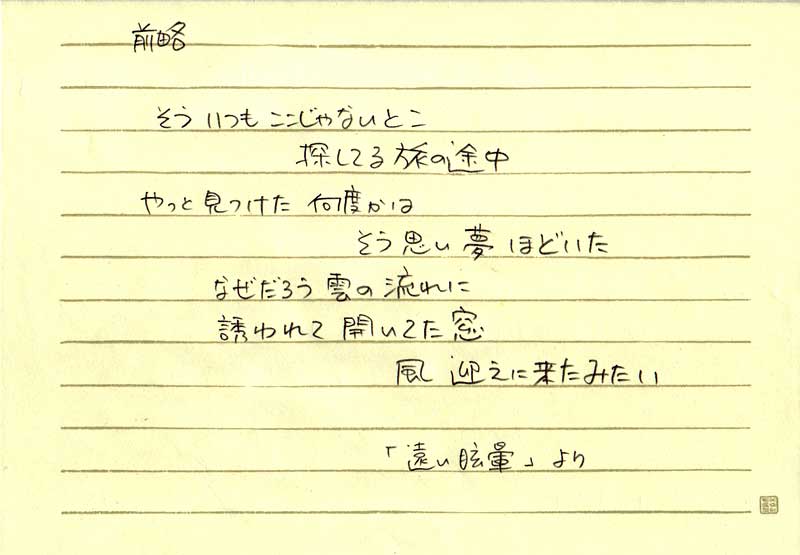 前略
そう いつも ここじゃないとこ
探してる旅の途中
やっと見つけた 何度かは
そう思い 夢 ほどいた
なぜだろう 雲の流れに
誘われて 開いてた窓
風 迎えに来たみたい
「遠い眩暈」より